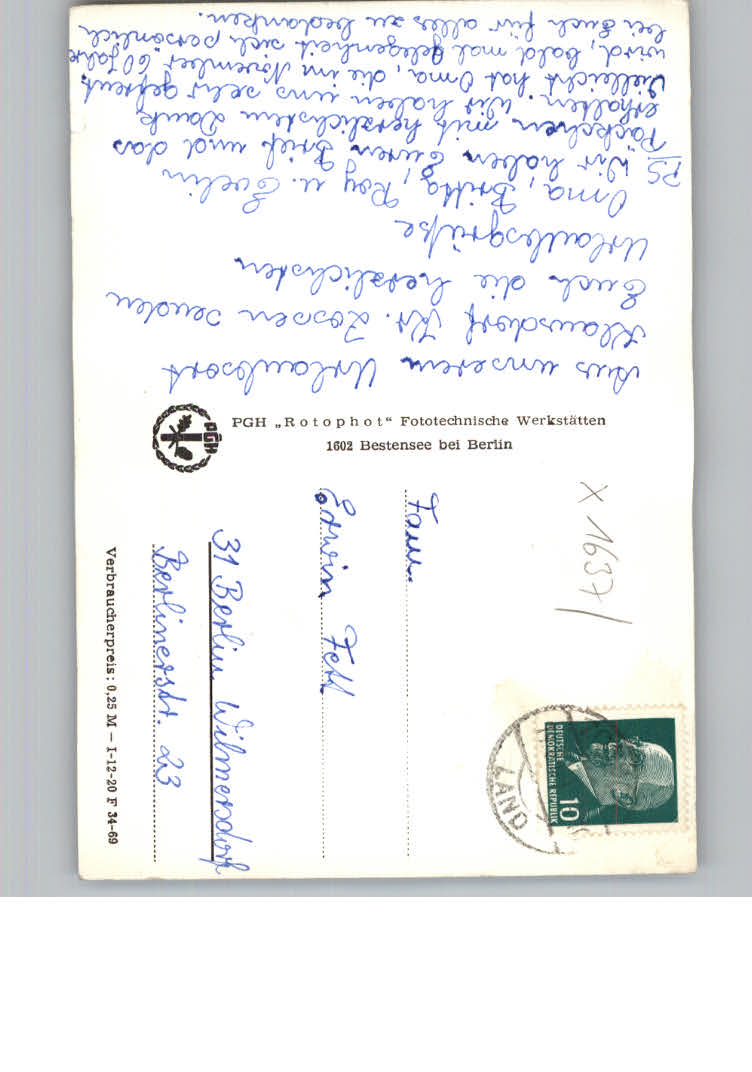 Aus unserem Urlaubsort
Klausdorf Kr. Zossen senden
Euch die herzlichsten
Urlaubsgrüße
Oma, Britta, Roy u. Evelin
PS Wir haben Euren Brief und das
Päckchen mit herzlichstem Dank
erhalten. Wir haben uns sehr gefreut
Vielleicht hat Oma, die im November 60 Jahre
wird, bald mal Gelegenheit sich persönlich
bei Euch für alles zu bedanken.
PGH „Rotophot“ Fototechnische Werkstätten
1602 Bestensee bei Berlin
PGH
x 1637/
DEUTSCHE
DEMOKRATISCHE REPUBLIK
10
LAND
Fam.
Erwin Fett
31 Berlin Wilmersdorf
Berlinerstr. 23
Verbraucherpreis: 0,25 M — I-12-20 F 34-69